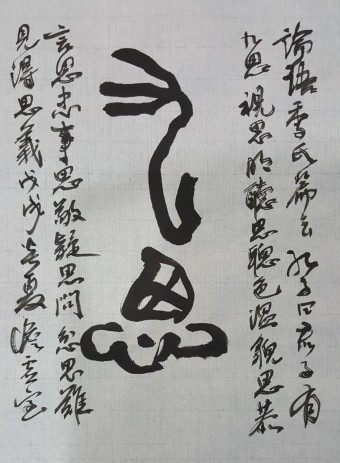 論語季氏篇云孔子曰君子有
九思視思明聽思聰色温貌思恭
九思
言思忠事思敬疑思問忿思難
見得思義戊戌炎夏